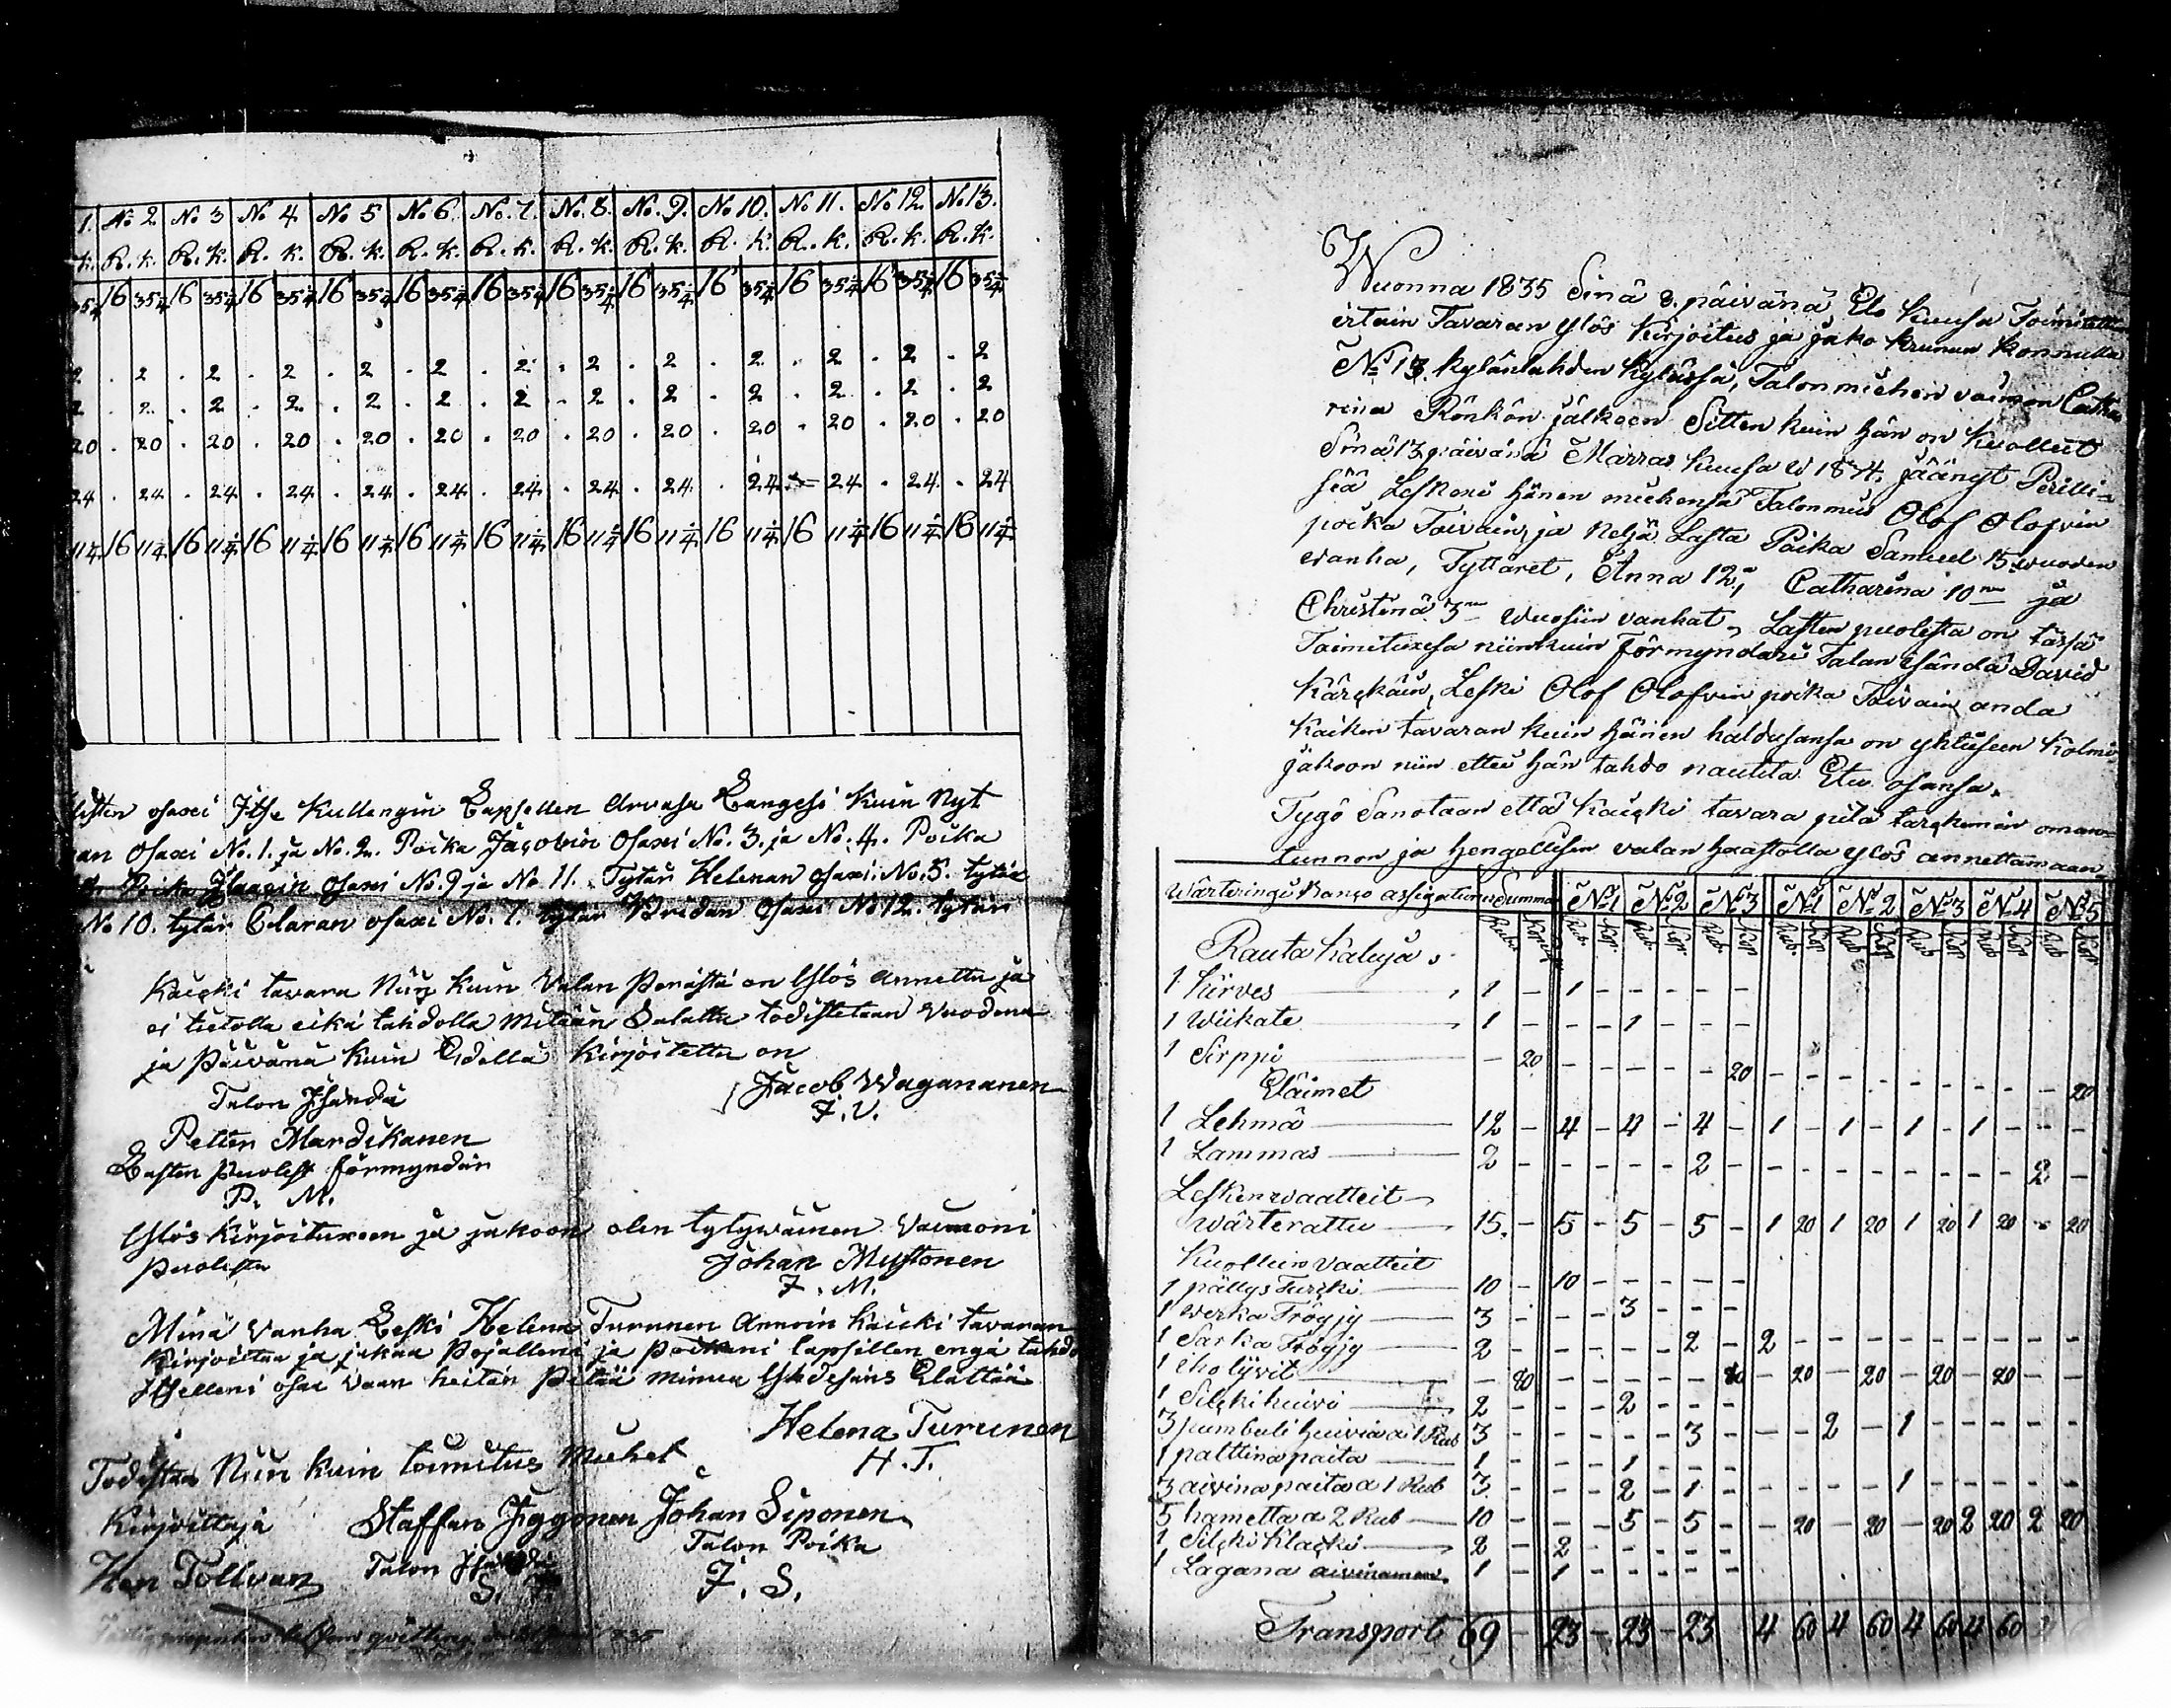 1. No 2. No 3 No 4. No 5 No 6. No. 7. No. 8. No. 9. No 10. No 11. No 12. No 13.
k. R. k. R. k. R. k. R. k. R. k. R. k. R. k. R. k. R. k. R. k. R. k. R. k.
35¼ 16 35¼ 16 35¼ 16 35¼ 16 35¼ 16 35¼ 16 35¼ 16 35¼ 16 35¼ 16 35¼ 16 35¼ 16 35¼ 16 35¼
2 . 2 . 2 . 2 . 2 . 2 . 2 . 2 . 2 . 2 . 2 . 2 . 2
2 . 2 . 2 . 2 . 2 . 2 . 2 . 2 . 2 . 2 . 2 . 2 . 2
20 . 20 . 20 . 20 . 20 . 20 . 20 . 20 . 20 . 20 . 20 . 20 . 20
24 . 24 . 24 . 24 . 24 . 24 . 24 . 24 . 24 . 24 . 24 . 24 . 24
11¼ 16 11¼ 16 11¼ 16 11¼ 16 11¼ 16 11¼ 16 11¼ 16 11¼ 16 11¼ 16 11¼ 16 11¼ 16 11¼ 16 11¼
osaxi Itse Kullengin Lapsellen Arvasa Langesi Kuin Nyt
an Osaxi No. 1. ja No. 2. Poika Jacobin Osaxi No. 3. ja No. 4. Poika
Poika osaxi No. 9 ja No 11. Tytär Helenan osaxi No. 5. tytär
No 10. tytär Claran osaxi No. 7. tytär Bridan Osaxi No 12. tytär
Kaicki tavara Niin kuin Valan Perästä on Ylös annettu ja
ei tietolla eikä tahdolla mitään Salattu todistetaan Vuodena
ja Päivänä kuin Edellä Kirjoitettu on
Talon Isändä Jacob Wagananen
J. V.
Petter Mardikanen
Lasten Puolest förmyndär
P. M.
Ylös Kirjoituxeen ja jakoon olen tytywäinen Vaimoni
Puolesta Johan Mustonen
J. M.
Minä Vanha Leski Helena Turunen Annoin kaicki tavaran
Kirjoittaa ja jakaa Pojalleni ja Poikani lapsillen engä tahdo
Itselleni osaa vaan heitän Pitää minua Elättää
Helena Turunen
H. T.
Todistaa Niin kuin toimitus Miehet
Kirjoittaja Staffan Iggonen Johan Siponen
Talon Poika
Hen Tollvan Talon
S. J. S.
Wuonna 1835 Sinä 8. päivänä Elo Kuusa Toimitettin
irtain Tavaran ylös Kirjoitus ja jako Krunun Konnulla
No 13. Kylänlahden Kylässä, Talonmiehen vaimon Catha
rina Rönkön jälkeen Sitten kuin hän on Kuollut
Sinä 13 päivänä Marras Kuusa w 1834. jäänyt Perilli=
siä Leskexi hänen miehensä Talonmies Olof Olofvin
poika Toivain, ja neljä Lasta Poika Samuel 15. vuoden
wanha, Tyttäret, Anna 12, Catharina 10 ja
Christina 3 wuosiin vanhat, Lasten puolesta on tässä
Toimituxesa niinkuin Förmyndari Talan isändä David
Kärckäin, Leski Olof Olofvin poika Toivain anda
kaiken tavaran kuin hänen haldusansa on yhtäseen Kolmi
jakoon niin ettei hän tahdo nautita Etu osansa.
Tygö Sanotaan että Kaicki tavara pitä tarckemin oman
tunnon ja hengellisen valan haastolla ylös annettamaan
Wärteringi Banco assignationes Summa No 1 No 2 No 3 No 1 No 2 No 3 No 4 No 5
Rub. Kop. Rub. Kop. Rub. Kop. Rub. Kop. Rub. Kop. Rub. Kop. Rub. Kop. Rub. Kop. Rub. Kop.
Rauta Kaluja.
1 Kirves 1 - 1 - - - - -
1 Wiikate 1 - - - 1 - - -
1 Sirppi - 20 - - - - - 20 - - - - - - - - - 20
Eläimet
1 Lehmä 12 - 4 - 4 - 4 - 1 - 1 - 1 - 1 - - -
1 Lammas 2 - - - - - 2 - - - - - - - - - 2 -
Lesken waatteit
wärterattu 15. - 5 - 5 - 5 - 1 20 1 20 1 20 1 20 - 20
Kuollein Vaatteit
1 pällys Turcki 10 - 10 - - - - -
1 werka Tröyjy 3 - - - 3 - - -
1 Sarka Tröyjy 2 - - - - - 2 - 2 - - - - - - - - -
1 iho liivit - 80 - - - - - 80 - 20 - 20 - 20 - 20 - -
1 Silcki huivi 2 - - - 2 - - -
3 pumbuli huivia a 1 Rub 3 - - - - - 3 - - - 2 - 1 - - - - -
1 palttina paita 1 - - - 1 - - -
3 aivina paitaa a 1 Rub 3 - - - 2 - 1 - - - - - 1 - - - - -
5 hametta a 2 Rub 10 - - - 5 - 5 - - 20 - 20 - 20 2 20 2 20
1 Silcki Klacki 2 - 2 - - - - -
1 Lagana aivinainen 1 - 1 - - - - -
Transport 69 - 23 - 23 - 23 4 60 4 60 4 60 4 60